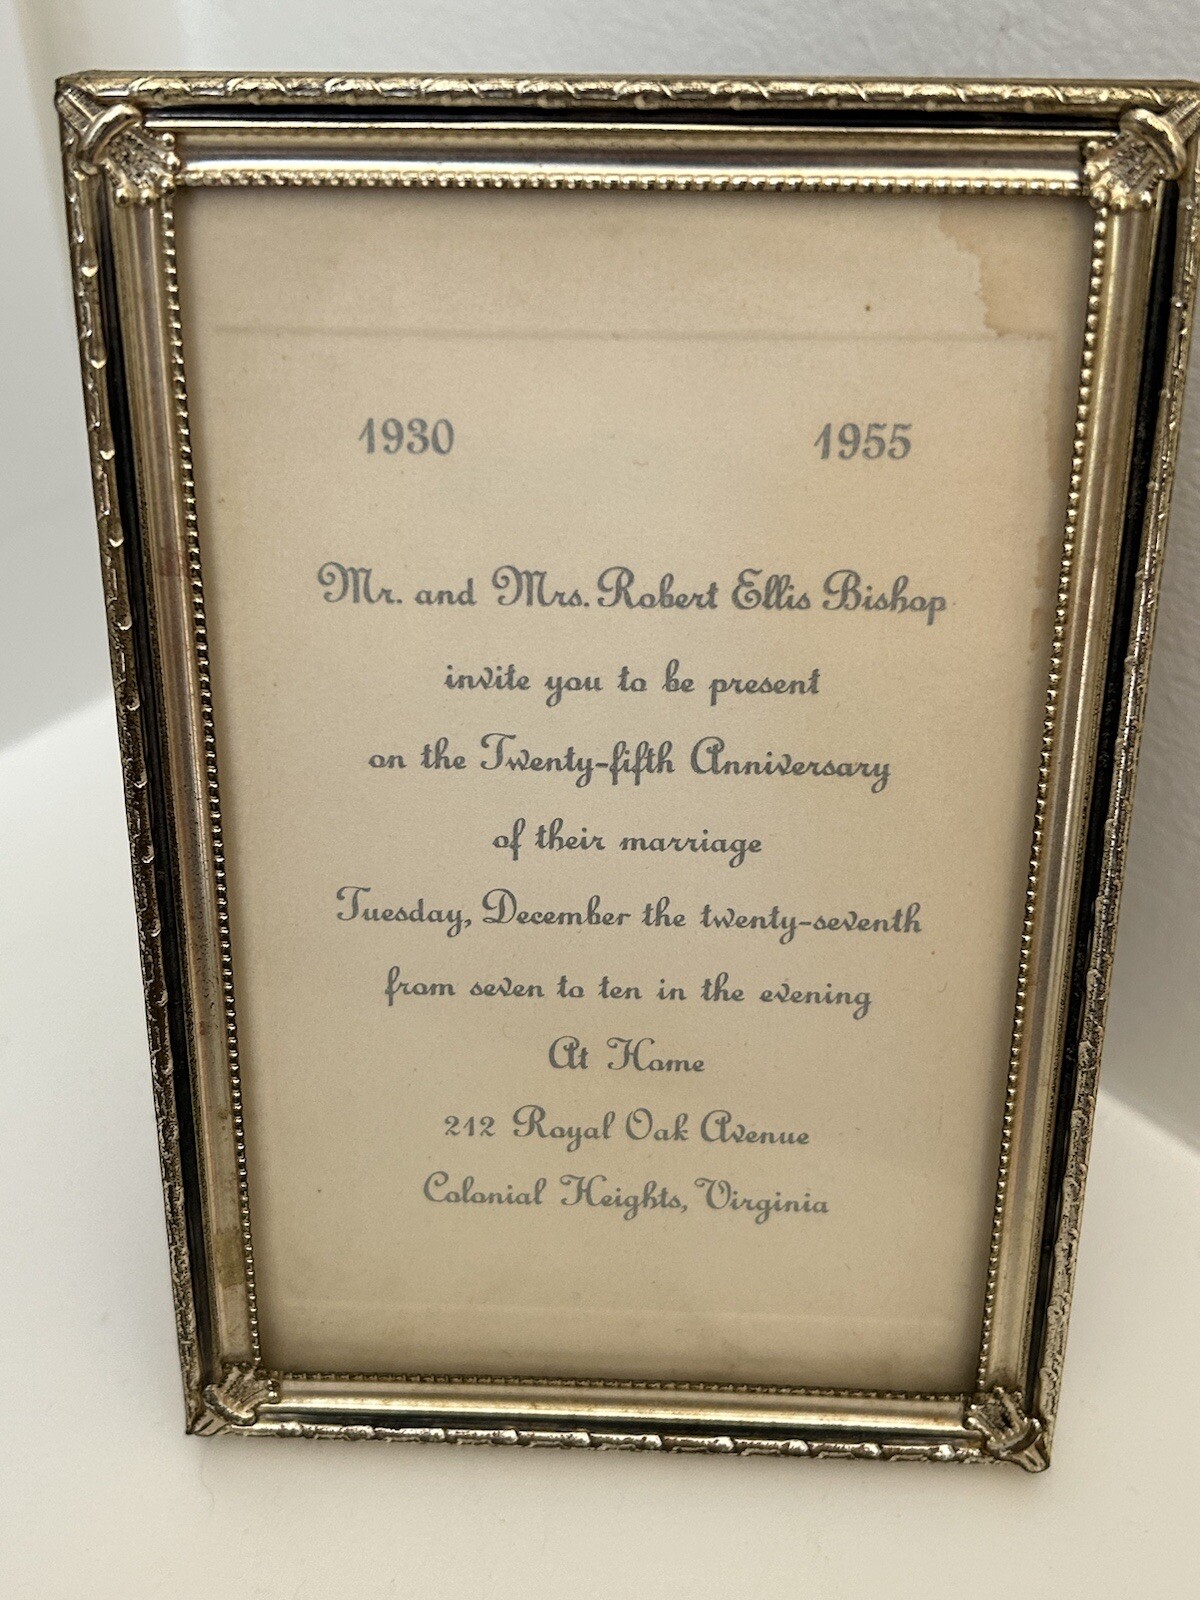 1930 1955
Mr. and Mrs. Robert Ellis Bishop
invite you to be present
on the Twenty-fifth Anniversary
of their marriage
Tuesday, December the twenty-seventh
from seven to ten in the evening
At Home
212 Royal Oak Avenue
Colonial Heights, Virginia